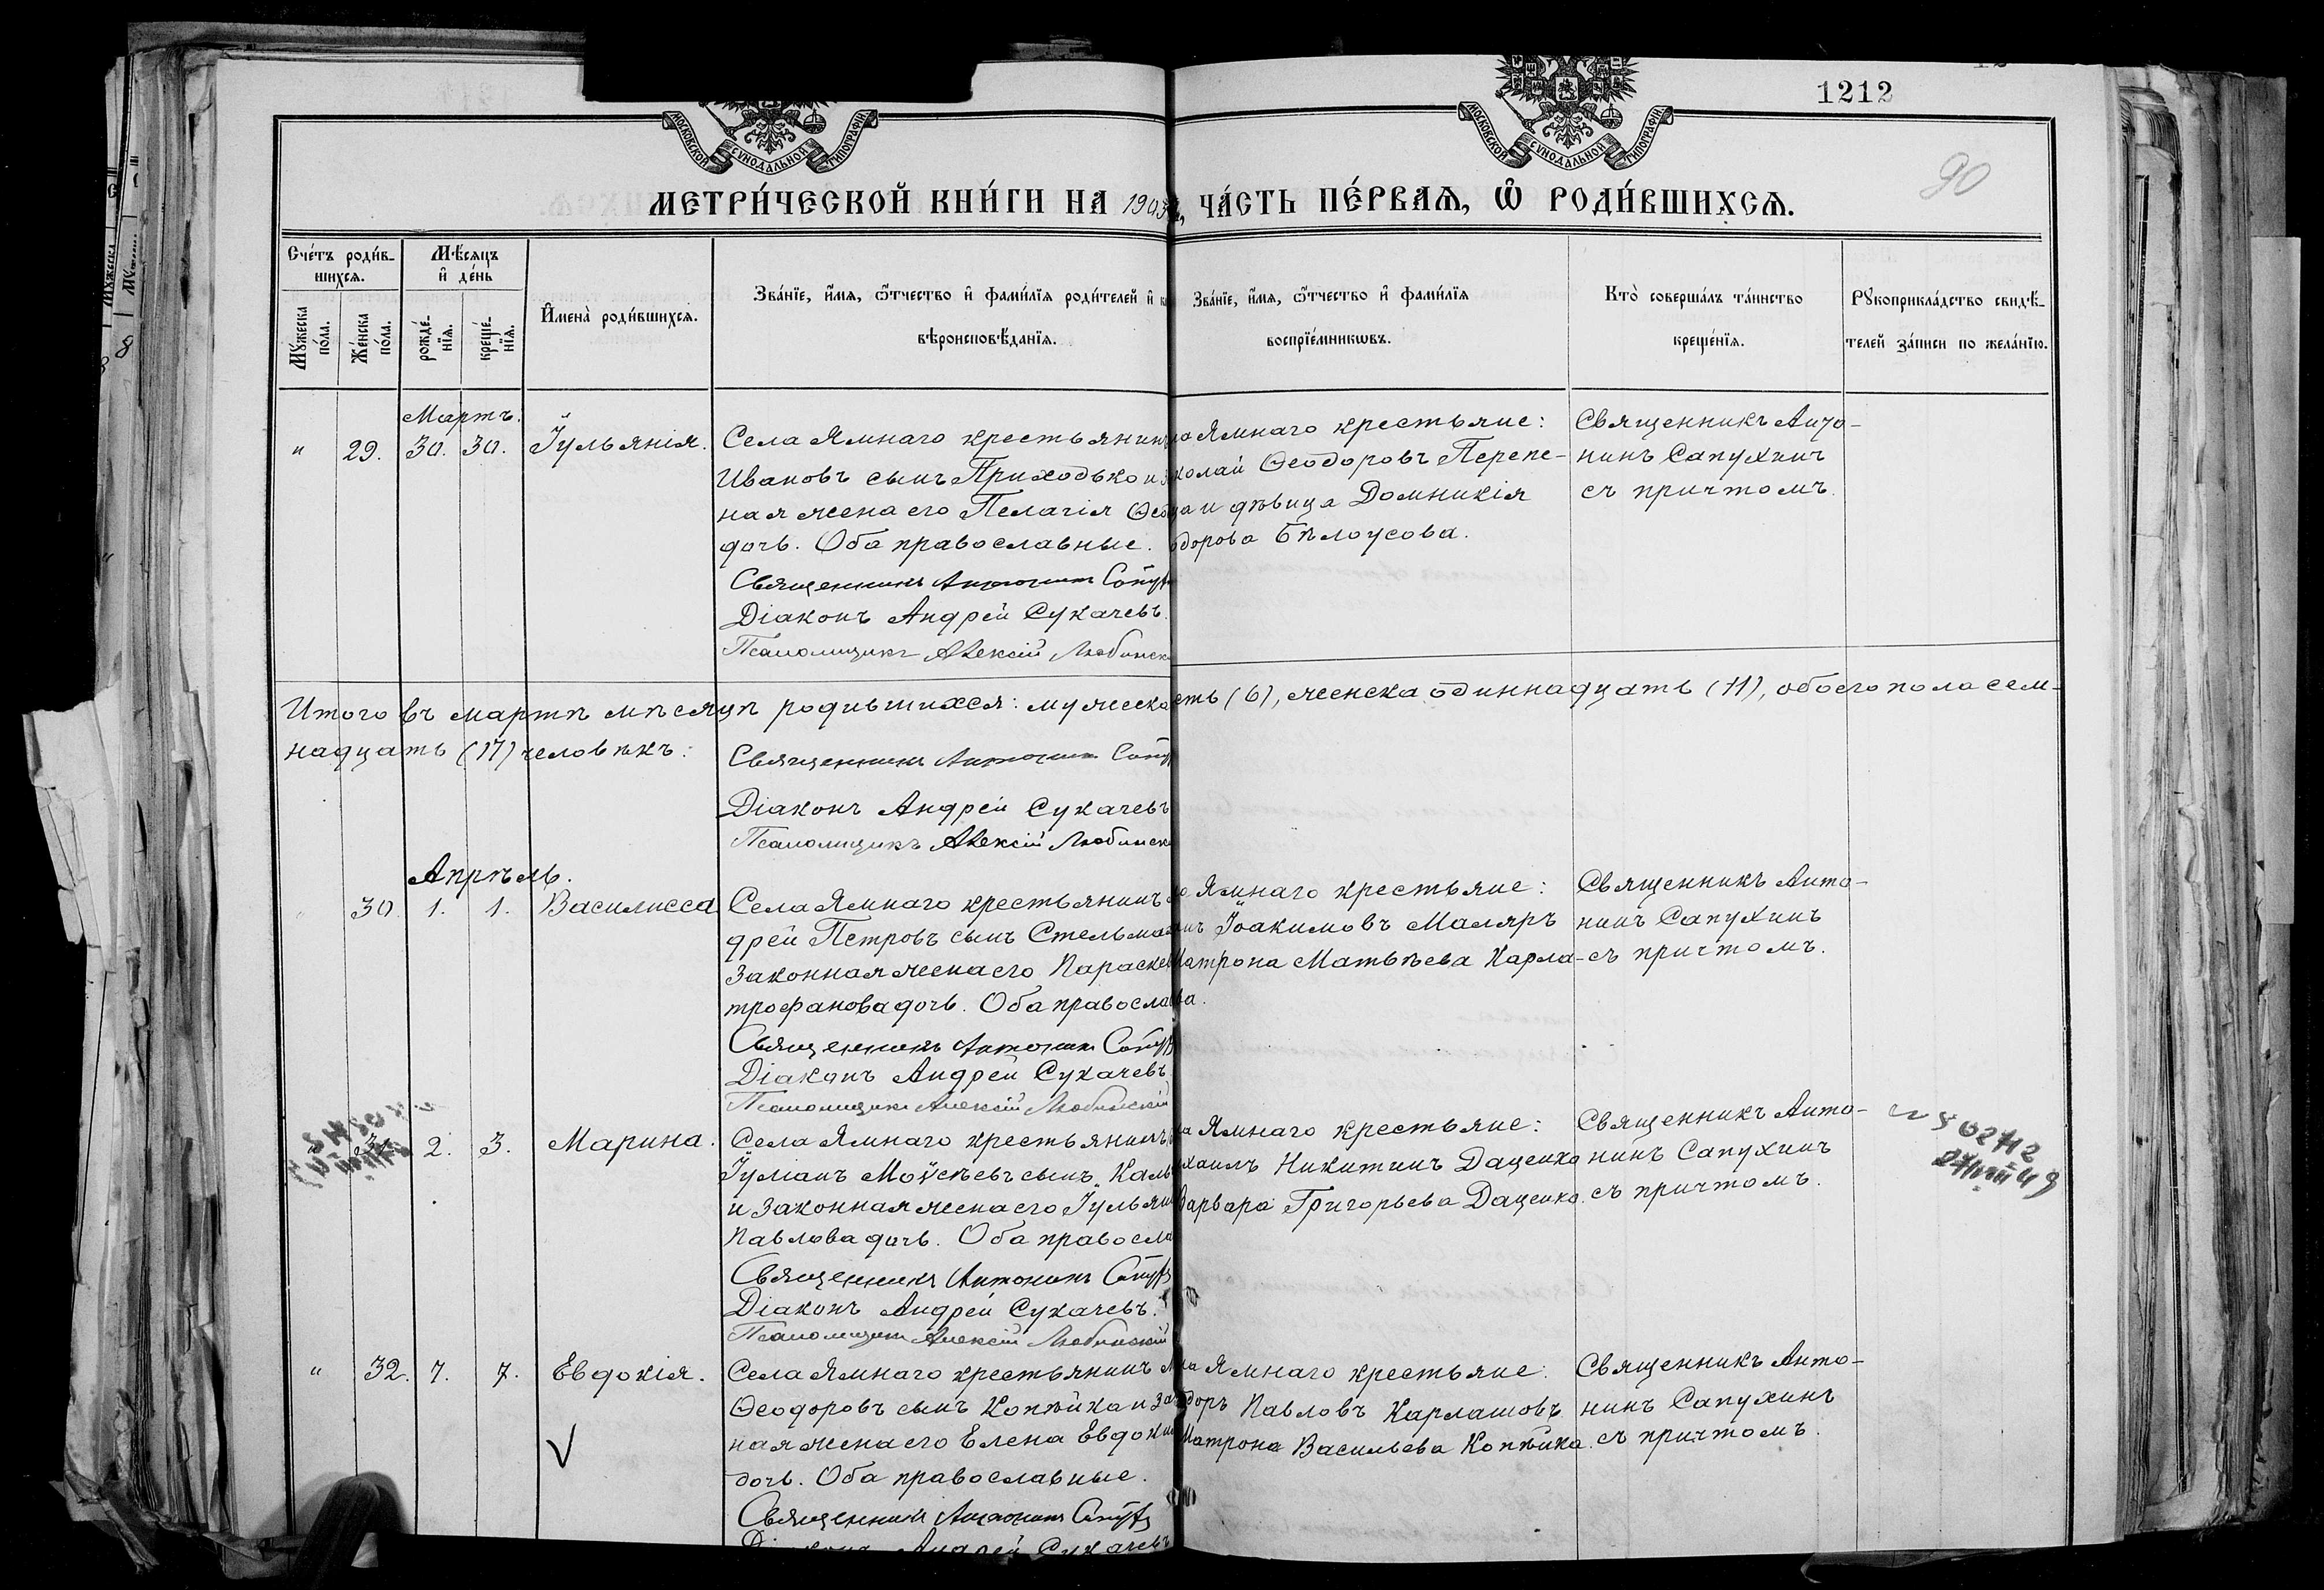 МОСКОВСКОЙ СУНОДАЛЬНОЙ ТИПОГРАФІИ.
МОСКОВСКОЙ СУНОДАЛЬНОЙ ТИПОГРАФІИ.
1212
90
МЕТРИ́ЧЕСКОЙ КНИ́ГИ НА 1903, ЧА́СТЬ ПЕ́РВАѦ, Ѡ РОДИ́ВШИХСѦ.
Сче́тъ роди́в-
шихсѧ.
Мꙋ́жеска по́ла.
Же́нска по́ла.
Мѣ́сѧцъ и҆ де́нь
рожде́-
нїѧ.
креще́-
нїѧ.
И҆мена̀ роди́вшихсѧ.
Зва́нїе, и҆́мѧ, ѻ҆́тчество и҆ фами́лїѧ роди́телей и҆
вѣроисповѣ́данїѧ.
Зва́нїе, и҆́мѧ, ѻ҆́тчество и҆ фами́лїѧ
воспрїе́мникѡвъ.
Кто̀ соверша́лъ та́инство
креще́нїѧ.
Рꙋкоприкла́дство свидѣ́-
телей за́писи по жела́нїю.
Мартъ.
" 29. 30. 30. Іульянія. Села Ямнаго крестьянинъ
Ивановъ сынъ Приходько и
ная жена его Пелагія Ѳео
дочь. Оба православные.
Священникъ Антонинъ Сапух
Діаконъ Андрей Сукачевъ.
Псаломщикъ Алексій Любинск
Ямнаго крестьяне:
колай Ѳеодоровъ Перепе-
и дѣвица Домникія
дорова Бѣлоусова.
Священникъ Анто-
нинъ Сапухинъ
съ причтомъ.
Итого въ мартѣ мѣсяцѣ родившихся: мужеска сть (6), женска одиннадцать (11), обоего пола сем-
надцать (17) человѣкъ.
Священникъ Антонинъ Сапу
Діаконъ Андрей Сукачевъ
Псаломщикъ Алексій Любинск
Апрѣль.
" 30. 1. 1. Василисса Села Ямнаго крестьянинъ
дрей Петровъ сынъ Стельма
законная жена его Параскев
трофанова дочь. Оба правосла
Священникъ Антонинъ Сапух
Діаконъ Андрей Сукачевъ.
Псаломщикъ Алексій Любинскій
Ямнаго крестьяне:
Іоакимовъ Маляръ
Матрона Матвѣева Карла-
ва.
Священникъ Анто-
нинъ Сапухинъ
съ причтомъ.
" 31. 2. 3. Марина. Села Ямнаго крестьянинъ
Іуліанъ Моѵсѣевъ сынъ Каль
и законная жена его Іульян
Павлова дочь. Оба правосла
Священникъ Антонинъ Сапух
Діаконъ Андрей Сукачевъ.
Псаломщикъ Алексій Любинскій
Ямнаго крестьяне:
хаилъ Никитинъ Даценко
Варвара Григорьева Даценко.
Священникъ Анто-
нинъ Сапухинъ
съ причтомъ.
" 32. 7. 7. Евдокія. Села Ямнаго крестьянинъ
Ѳеодоровъ сынъ Копѣйка и за
ная жена его Елена Евдоки
дочь. Оба православные.
Священникъ Антонинъ Сапух
Діаконъ Андрей Сукачевъ
Ямнаго крестьяне:
доръ Павловъ Карлашовъ
Матрона Васильева Копѣйка.
Священникъ Анто-
нинъ Сапухинъ
съ причтомъ.